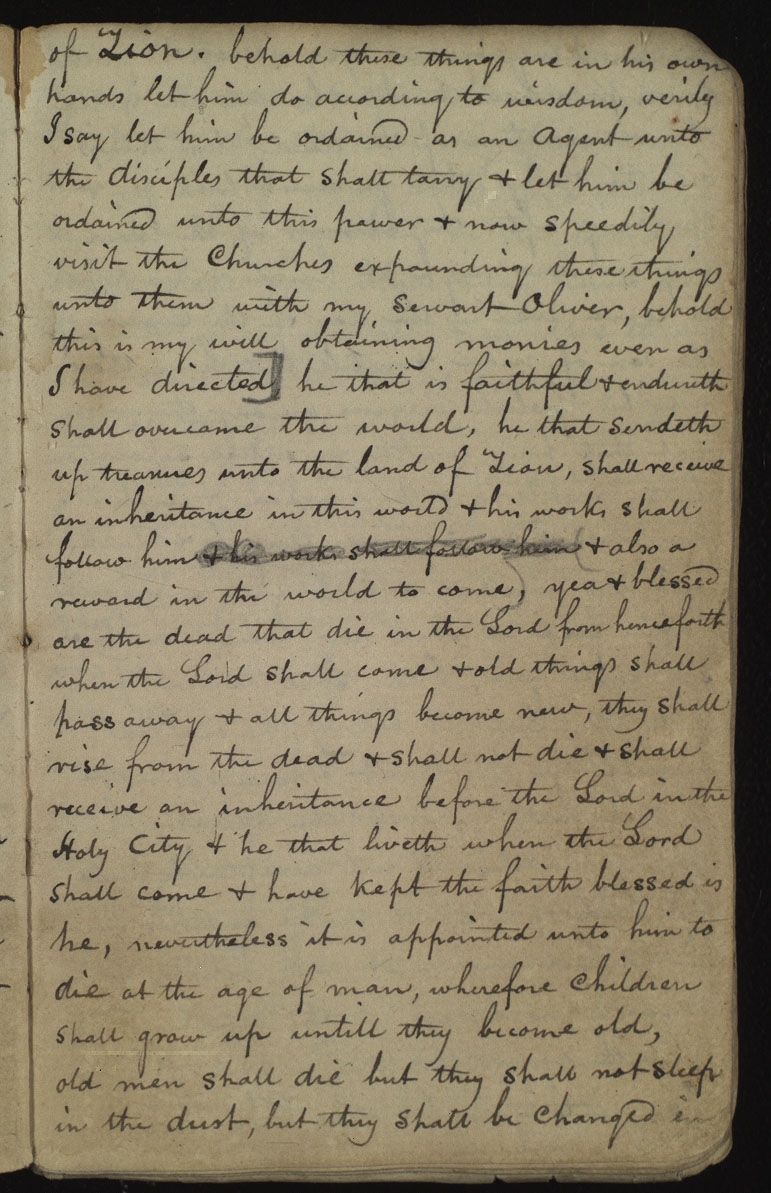 of Zion. behold these things are in his own
hands let him do according to wisdom, verily
I say let him be ordained as an Agent unto
the disciples that shall tarry & let him be
ordained unto this power & now speedily
visit the Churches expounding these things
unto them with my Servant Oliver, behold
this is my will obtaining monies even as
I have directed] he that is faithful & endureth
shall overcome the world, he that Sendeth
up treasures unto the land of Zion, shall receive
an inheritance in this world & his works shall
follow him & his works shall follow him & also a
reward in the world to come, yea & blessed
are the dead that die in the Lord from henceforth
when the Lord shall come & old things shall
pass away & all things become new, they shall
rise from the dead & shall not die & shall
receive an inheritance before the Lord in the
Holy City & he that liveth when the Lord
shall come & have kept the faith blessed is
he, nevertheless it is appointed unto him to
die at the age of man, wherefore children
shall grow up untill they become old,
old men shall die but they shall not sleep
in the dust, but they shall be changed in